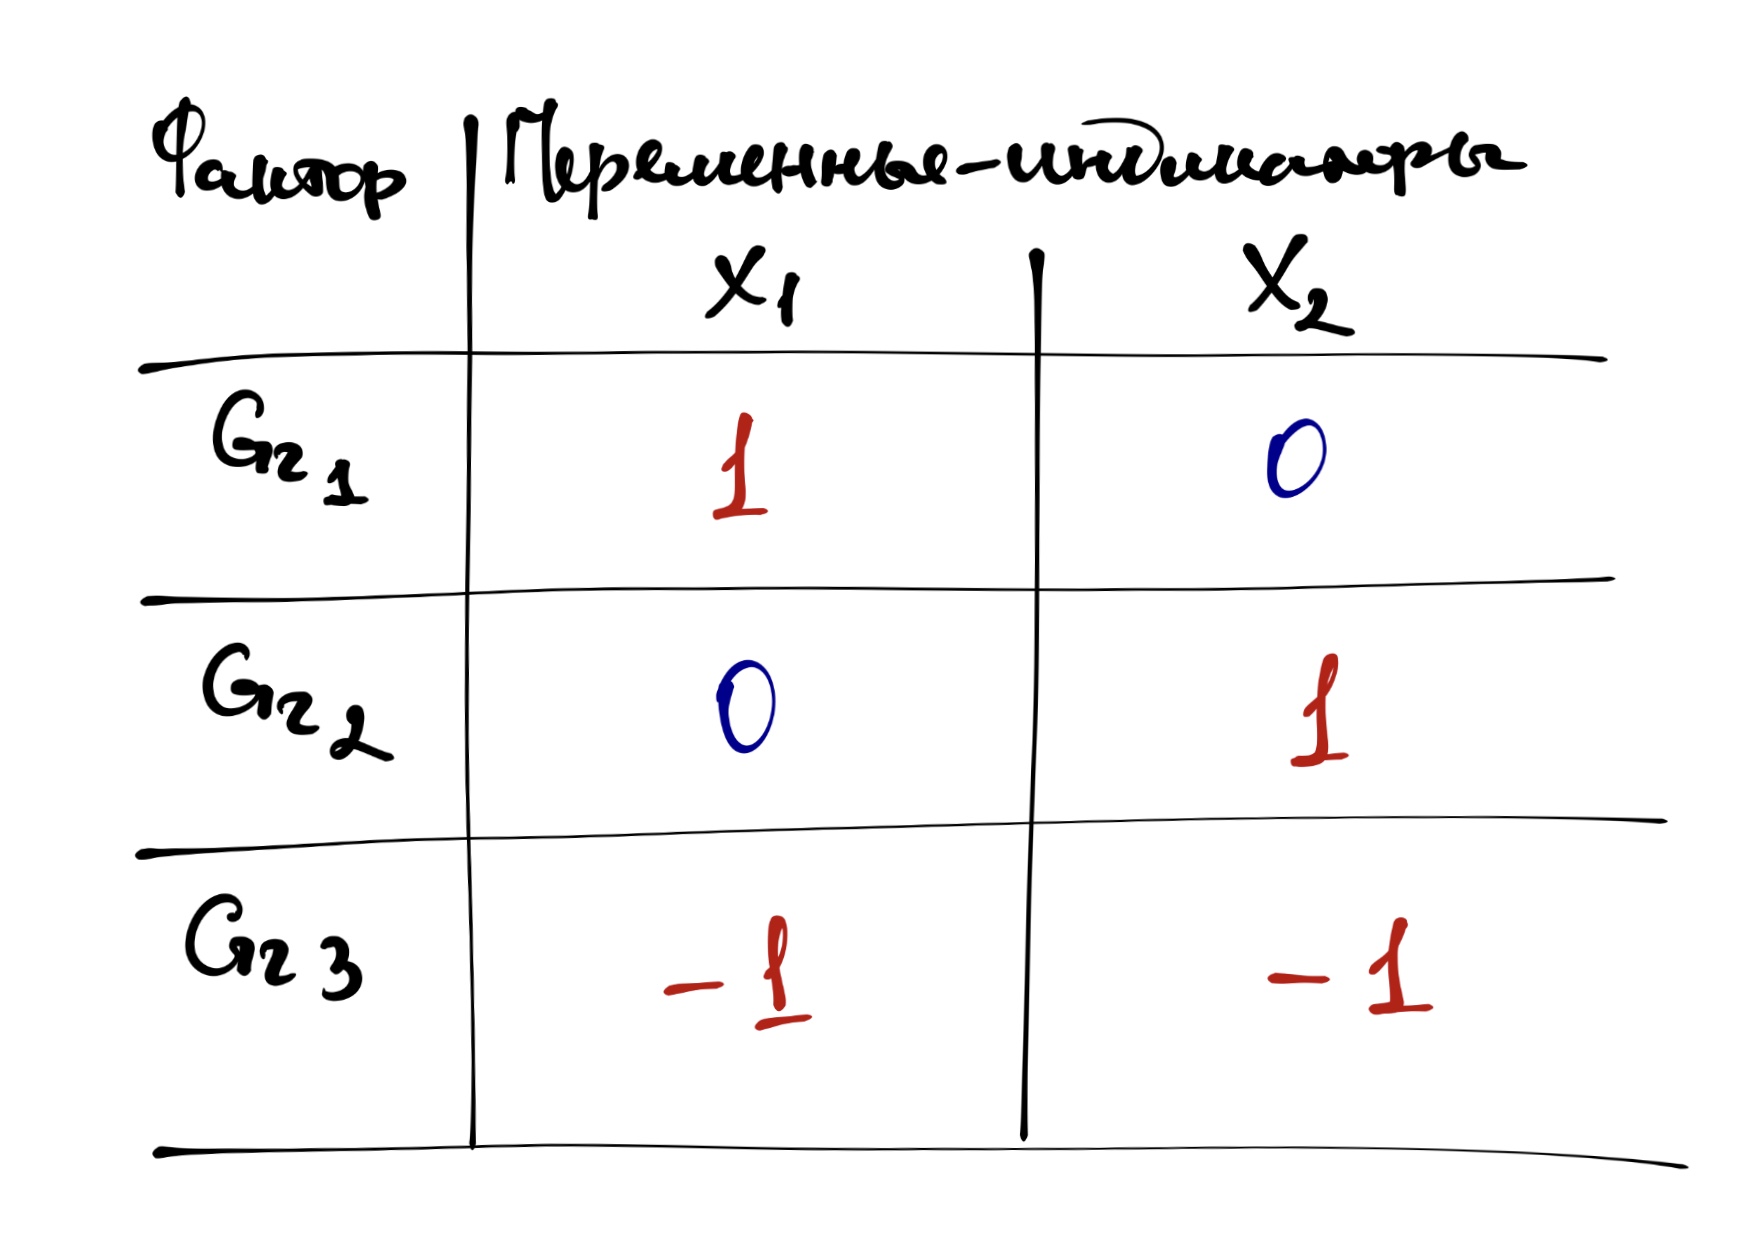 Фактор Переменные-индикаторы
X1 X2
Gr1 1 0
Gr2 0 1
Gr3 -1 -1